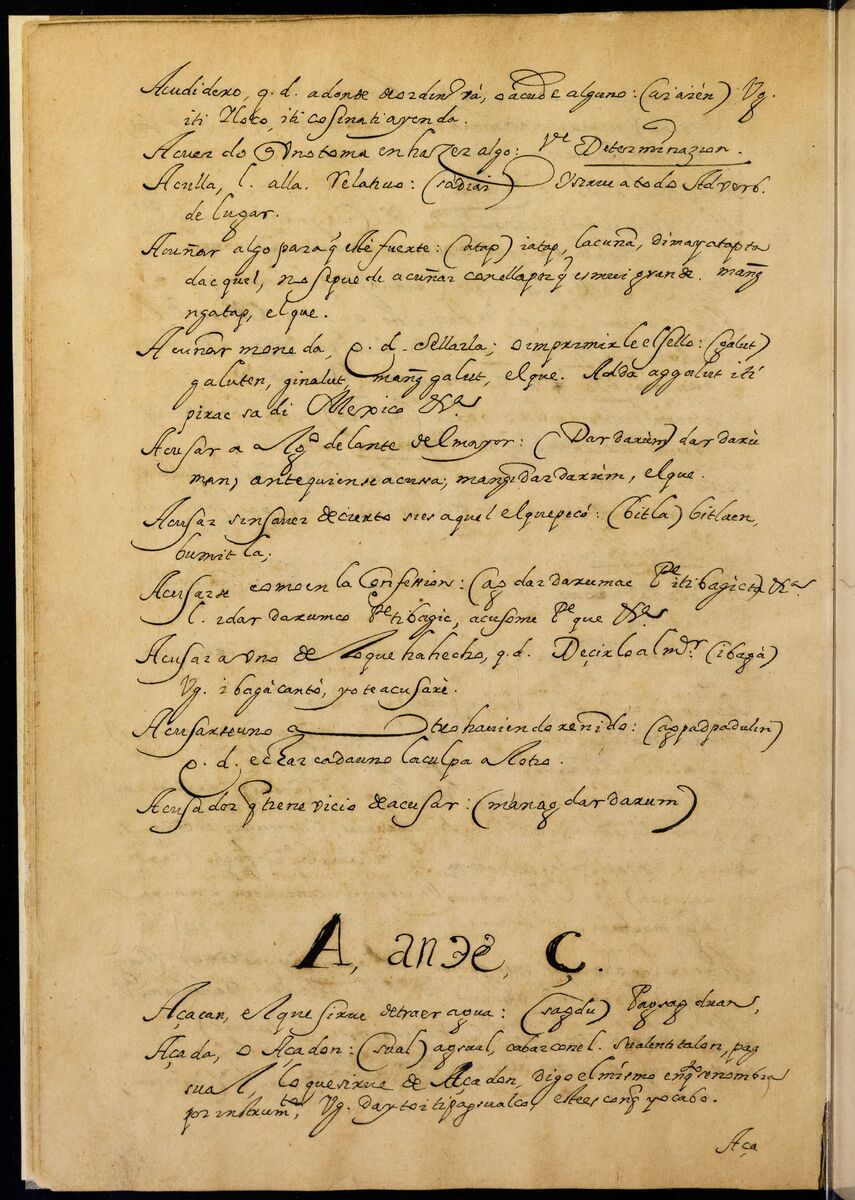 Acudidero, q. d. adonde de ordin.º vá, o ácude alguno: (ar arén) Vg.
iti Iloco, iti cosina ti ayenda.
Acuerdo q̃ uno toma en hazer algo: Vᵉ Determinazion.
Aculla, l. alla. Relatiuo: (sadiai) I sirue a todo Adverb.
de lugar.
Acuñar algo para q̃ esté fuerte: (atap) iatap, la cuña, dimayatap ta
dacquel, no se puede acuñar con ella porq̃ es mui grande. mang̃
ngatap, el que.
Acuñar moneda, q. d. Sellarla; o imprimirle el sello: (galut)
galuten, ginalut, mang̃galut, el que. Adda aggalut iti
pirac sa di Mexico &ª
Acusar a Alg.º delante del mayor: (Dardarùm) dardarù
man, ante quien se acusa; mang̃idardarùm, el que.
Acusar sin saver de cierto si es aquel el que pecó: (bitla) bitlaen,
bumitla;
Acusarse como en la Confession: (ag dardarumac Pᵉ iti bagic) &ª
l. idardarumco Pᵉ ti bagic, acusome Pᵉ que &ª
Acusar a uno de lo que ha hecho, q. d. Deçirlo al mᵈʳ (ibagà)
Vg. ibagàcantò, yo te acusarè.
Acusarse uno a otro haviendo reñido: (agpadpadulin)
q. d. echar cada uno la culpa al otro.
Acusador q̃ tiene vicio de acusar: (mánag dardarum)
A, ante, Ç.
Açacan, el que sirue de traer agua: (sagdu) Pagsagduan,
Açada, o Açadon: (sual) agsual, cabar con el. sualen ti talon, pag
sual, lo que sirue de Açadon, digo el mismo enqᵗᵒ se nombra
por instrumᵗᵒ, Vg. daytoi ti pagsualco, este es conq̃ yo cabo.
Aça